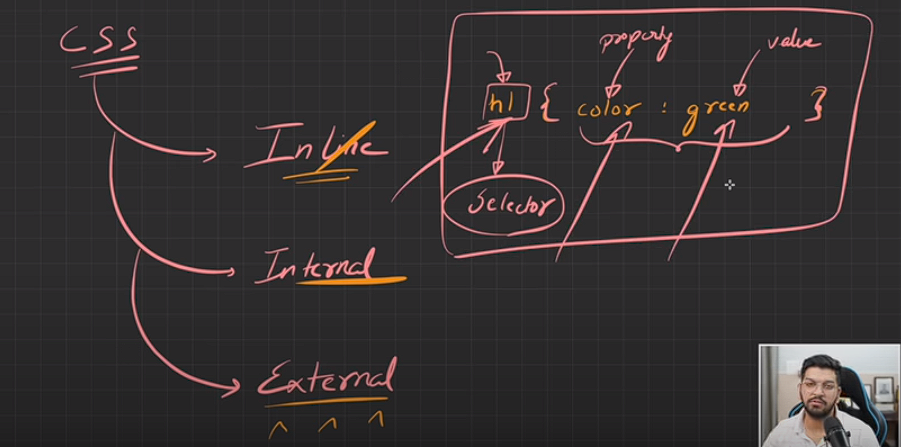 CSS
Inline
Internal
External
property
value
h1 { color : green }
Selector